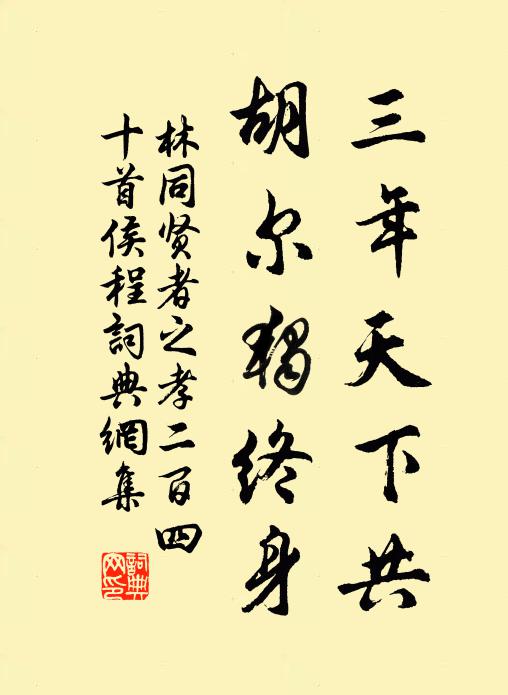 三年天下共
胡尔独终身
林同贤者之孝二百四
十首侯程詞典網集
詞典
网印